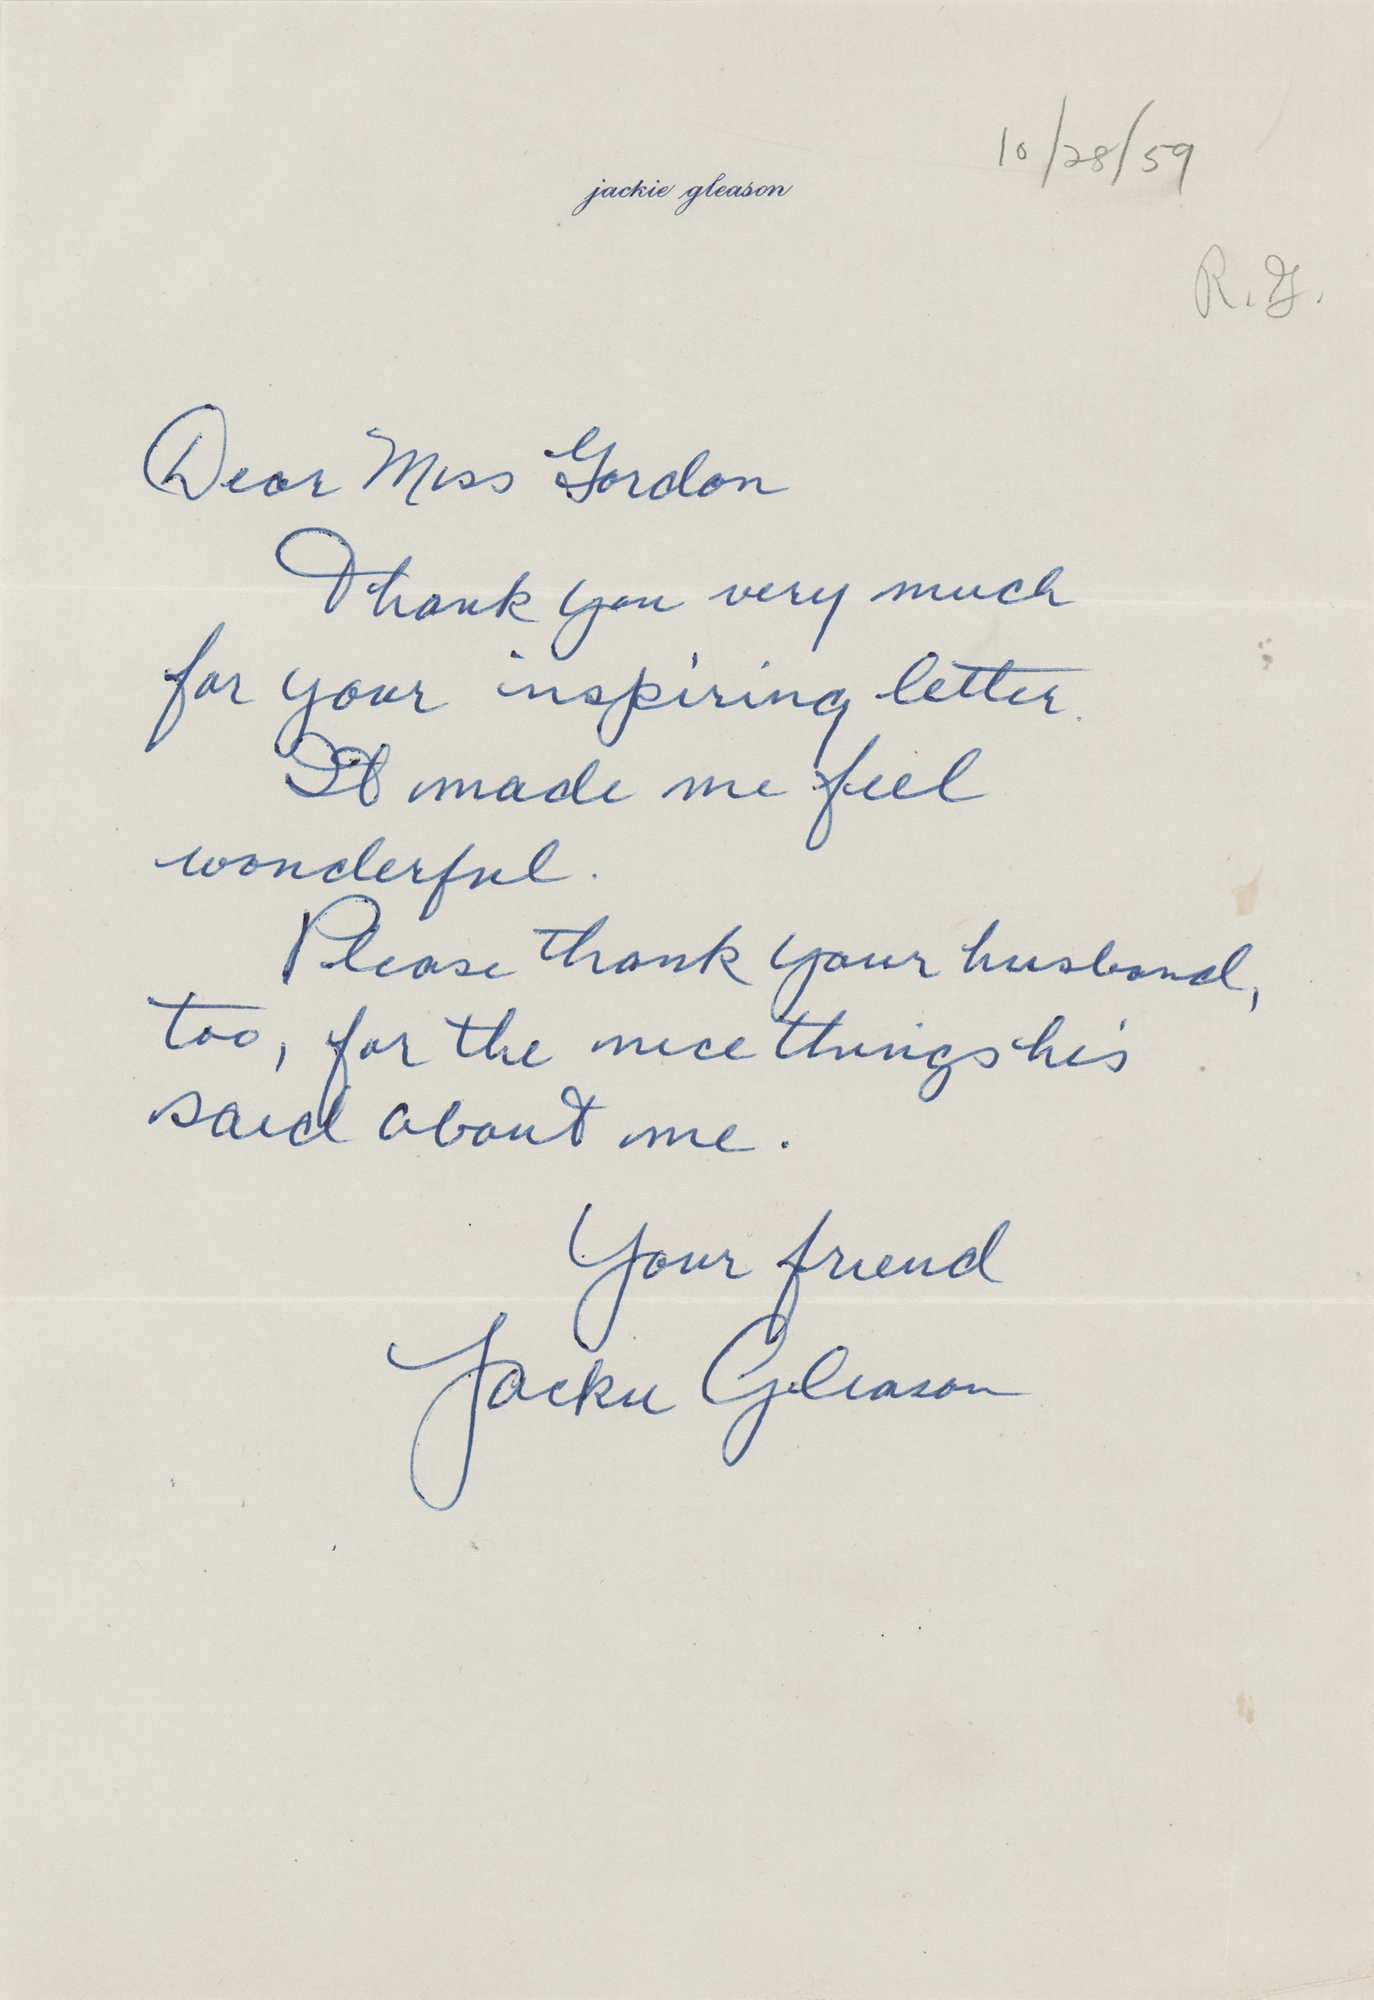 10/28/59
jackie gleason
R.G.
Dear Miss Gordon
Thank you very much
for your inspiring letter.
It made me feel
wonderful.
Please thank your husband,
too, for the nice things he's
said about me.
Your friend
Jackie Gleason